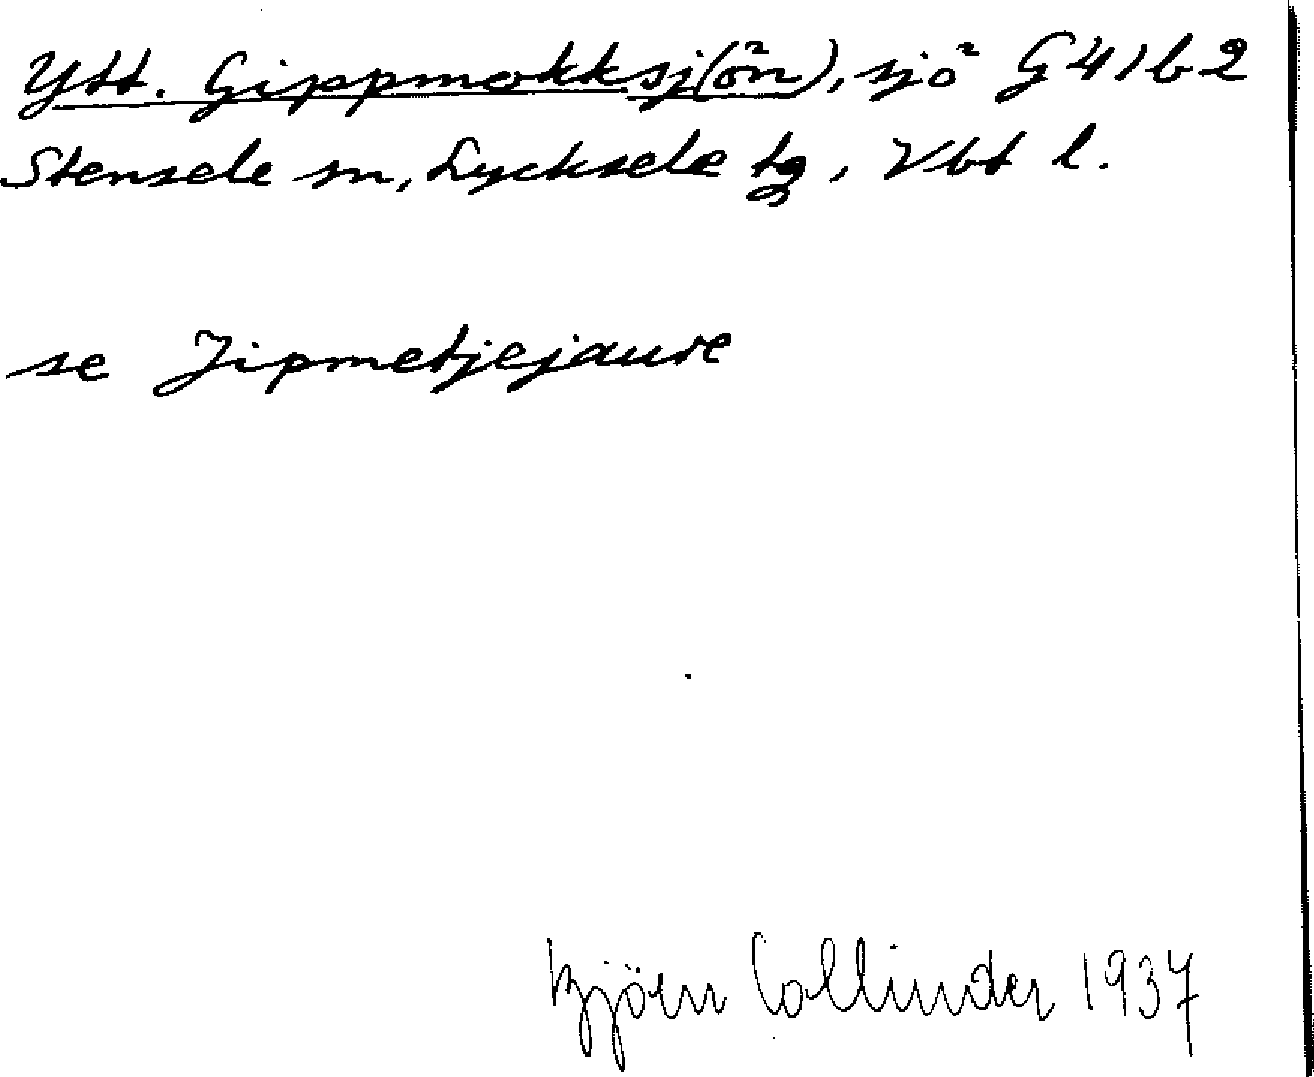 Ytt. Gippmokksj(ön), sjö G 41 b 2
Stensele sn, Lycksele tg, Vbt l.
se Jipmetjejaure
Björn Collinder 1937